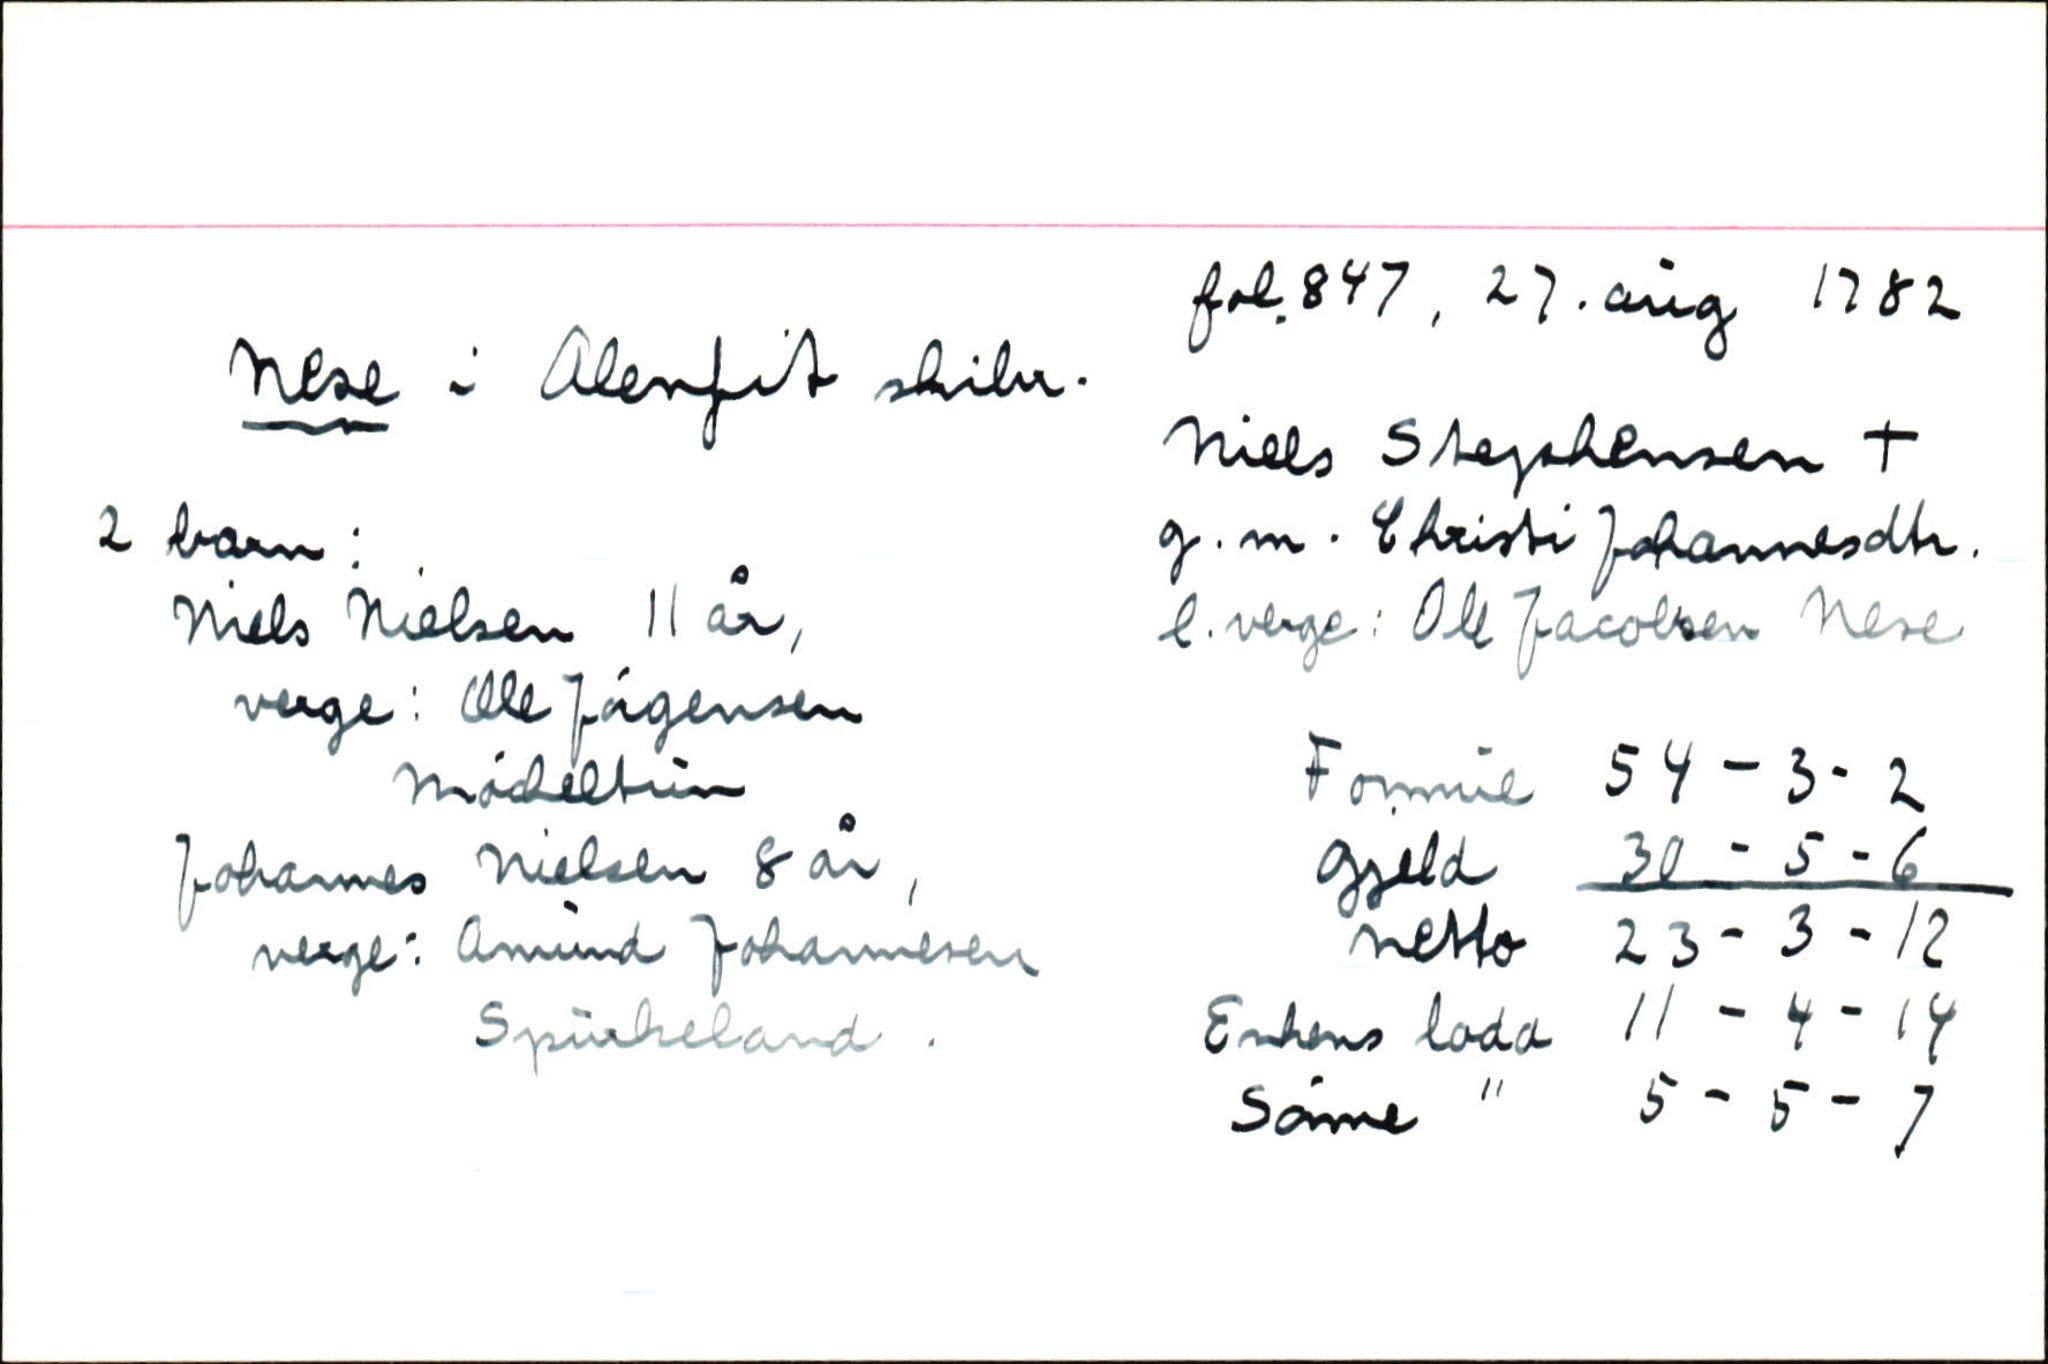 fol. 847, 27. aug 1782
Nese i Alenfit skibr.
Niels Stephensen +
g. m. Christi Johannesdtr.
l. verge: Ole Jacobsen Nese
2 barn:
Niels Nielsen 11 år,
verge: Ole Jógensen
Módheltun
Johannes Nielsen 8 år,
verge: Amund Johannesen
Spurkeland.
Formue 54 - 3 - 2
Gjeld 30 - 5 - 6
netto 23 - 3 - 12
Enkens lodd 11 - 4 - 14
Sónne " 5 - 5 - 7